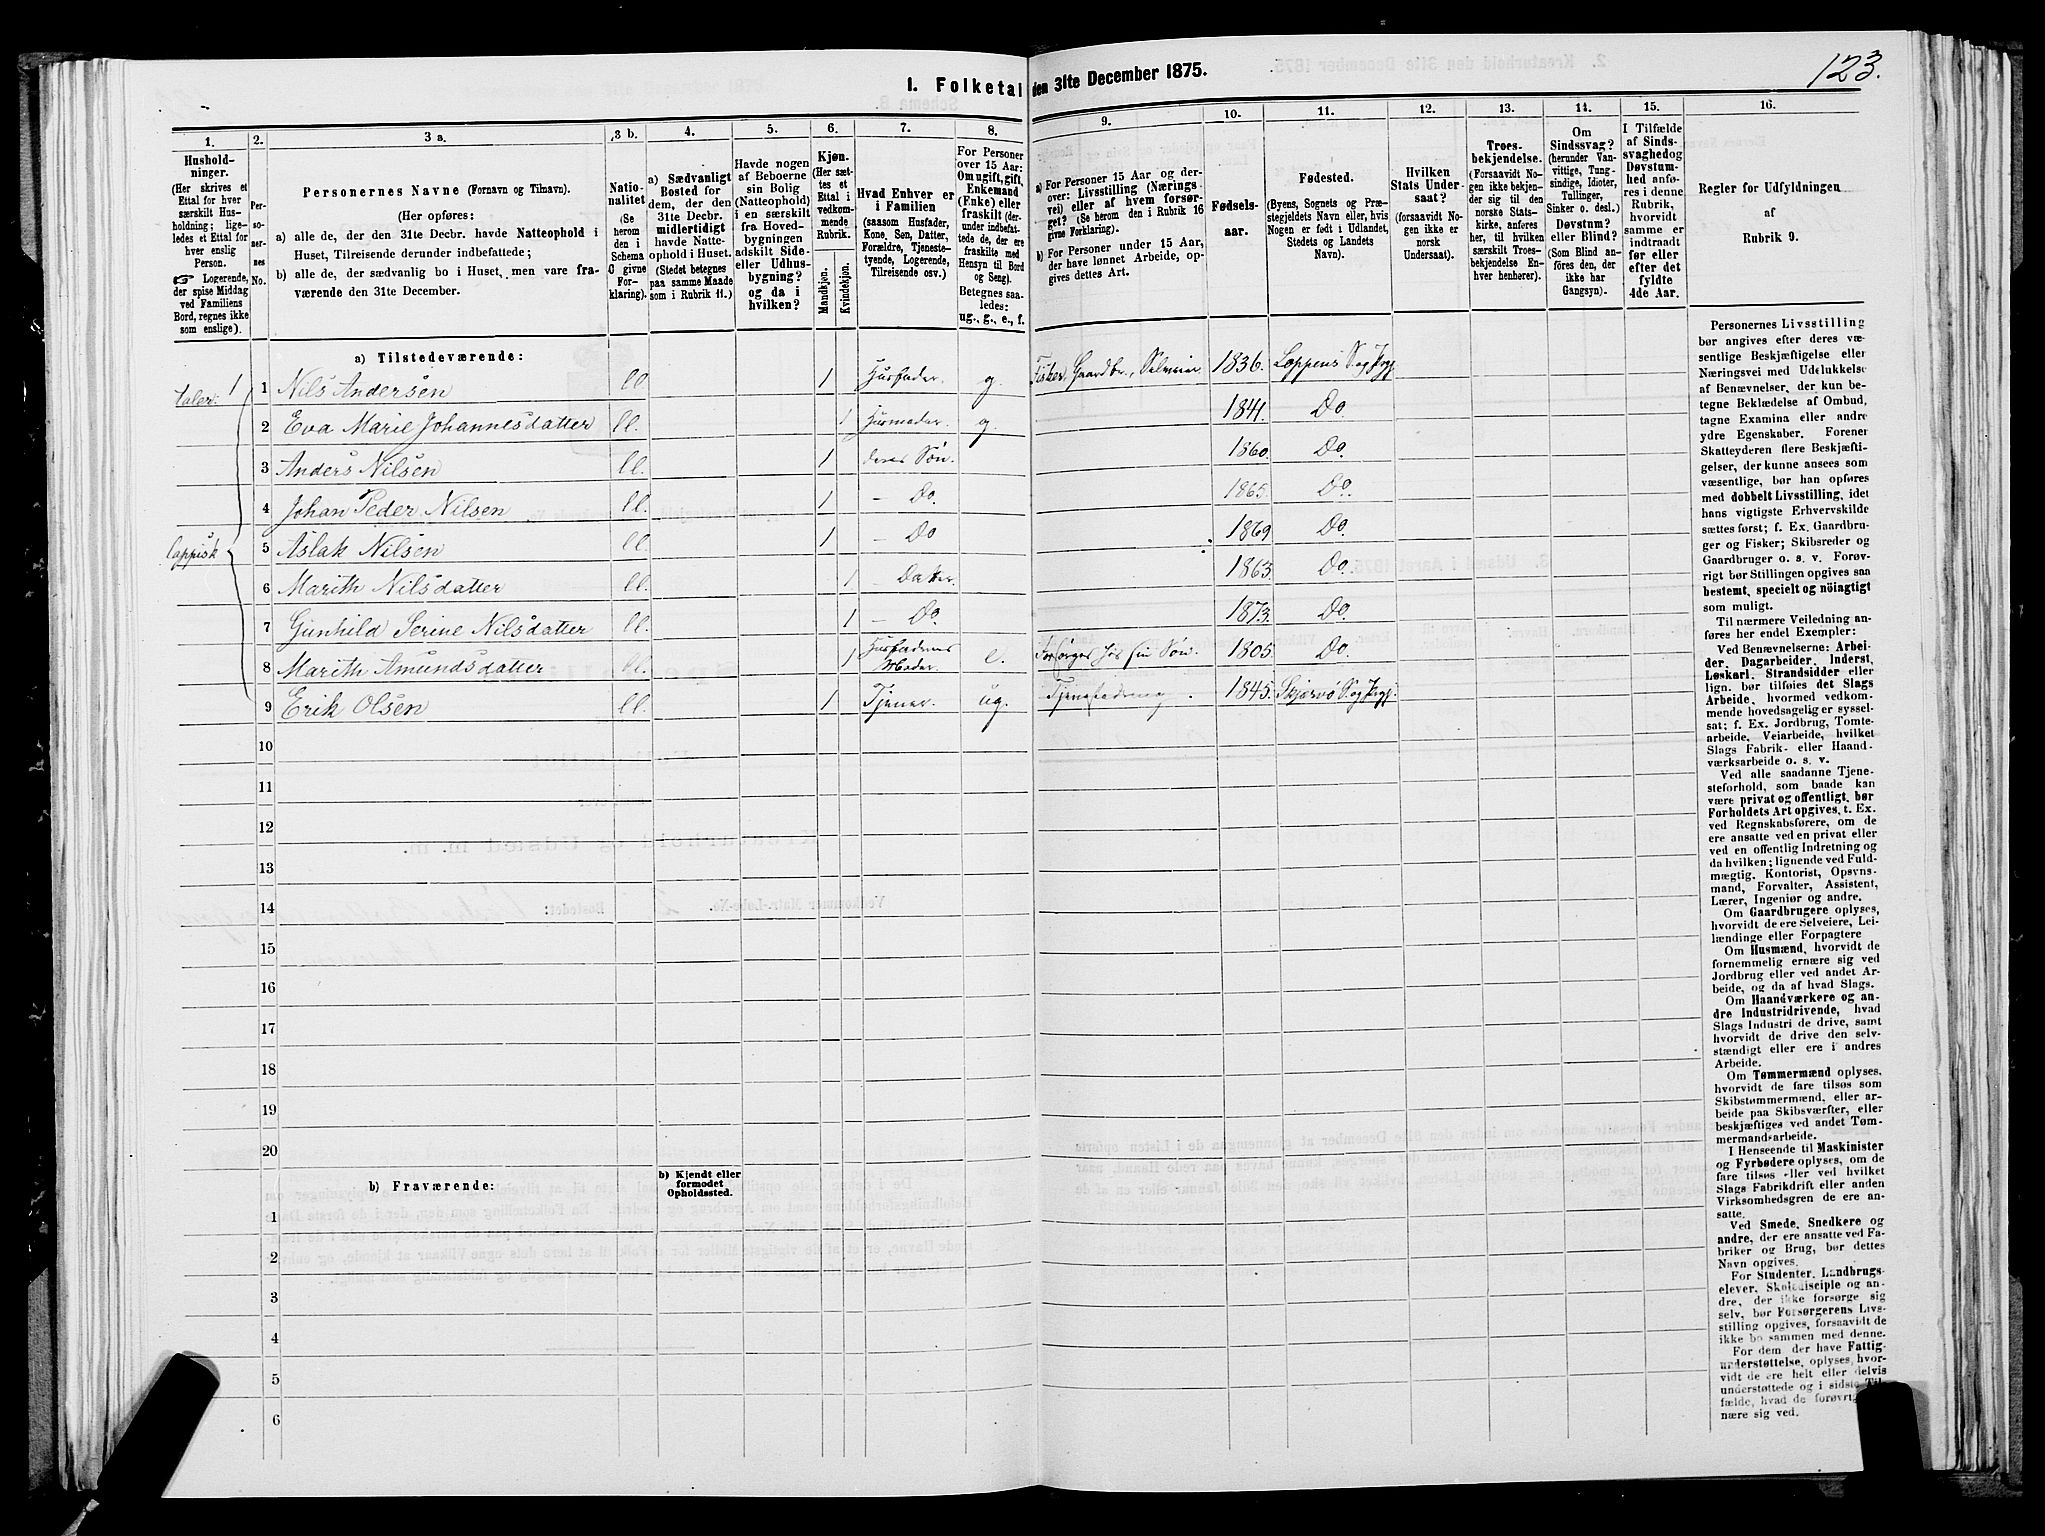 123.
I. Folketal den 31te December 1875.
1. 2. 3 a. 3 b. 4. 5. 6. 7. 8. 9. 10. 11. 12. 13. 14. 15. 16.
Hushold-
ninger.
(Her skrives et
Ettal for hver
særskilt Hus-
holdning; lige-
ledes et Ettal for
hver enslig
Person.
☞ Logerende,
der spise Middag
ved Familiens
Bord, regnes ikke
som enslige).
Per-
so-
ner-
nes
No.
Personernes Navne (Fornavn og Tilnavn).
(Her opføres:
a) alle de, der den 31te Decbr. havde Natteophold i
Huset, Tilreisende derunder indbefattede;
b) alle de, der sædvanlig bo i Huset, men vare fra-
værende den 31te December.
Natio-
nalitet
(Se
herom
den i
Schema
C givne
For-
klaring).
a) Sædvanligt
Bosted for
dem, der den
31te Decbr.
midlertidigt
havde Natte-
ophold i Huset.
(Stedet betegnes
paa samme Maade
som i Rubrik 11.)
Havde nogen
af Beboerne
sin Bolig
(Natteophold)
i en særskilt
fra Hoved-
bygningen
adskilt Side-
eller Udhus-
bygning?
og da i
hvilken?
Kjøn.
(Her sæt-
tes et
Ettal i
vedkom-
mende
Rubrik.
Mandkjøn.
Kvindekjøn.
Hvad Enhver er
i Familien
(saasom Husfader,
Kone, Søn, Datter,
Forældre, Tjeneste-
tyende, Logerende,
Tilreisende osv.)
For Personer
over 15 Aar:
Om ugift, gift,
Enkemand
(Enke) eller
fraskilt (der-
under indbefat-
tede de, der ere
fraskilte med
Hensyn til Bord
og Seng).
Betegnes saa-
ledes:
ug., g., e., f.
a) For Personer 15 Aar og der-
over: Livsstilling (Nærings-
vei) eller af hvem forsør-
get? (Se herom den i Rubrik 16
givne Forklaring).
b) For Personer under 15 Aar,
der have lønnet Arbeide, op-
gives dettes Art.
Fødsels-
aar.
Fødested.
(Byens, Sognets og Præ-
stegjeldets Navn eller, hvis
Nogen er født i Udlandet,
Stedets og Landets
Navn).
Hvilken
Stats Under-
saat?
(forsaavidt No-
gen ikke er
norsk
Undersaat).
Troes-
bekjendelse.
(Forsaavidt No-
gen ikke bekjen-
der sig til den
norske Stats-
kirke, anføres
her, til hvilken
særskilt Troes-
bekjendelse En-
hver henhører).
Om
Sindssvag?
(herunder Van-
vittige, Tung-
sindige, Idioter,
Tullinger,
Sinker o. desl.)
Døvstum?
eller Blind?
(Som Blind an-
føres den, der
ikke har
Gangsyn).
I Tilfælde
af Sinds-
svaghed og
Døvstum-
hed anfø-
res i denne
Rubrik,
hvorvidt
samme er
indtraadt
før eller
efter det
fyldte
4de Aar.
Regler for Udfyldningen
af
Rubrik 9.
a) Tilstedeværende:
taler
lappisk
1 1 Nils Andersen ll 1 Husfader. g. Fisker, Gaardbr., Selveier 1836. Loppens S. og Prgj.
2 Eva Marie Johannesdatter ll. 1 Husmoder. g. 1841. Do.
3 Anders Nilsen ll. 1 deres Søn. 1860. Do.
4 Johan Peder Nilsen ll. 1 – Do. 1865. Do.
5 Aslak Nilsen ll. 1 – Do 1869 Do.
6 Marith Nilsdatter ll. 1 – Datter. 1863. Do.
7 Gunhild Serine Nilsdatter ll. 1 – Do. 1873. Do.
8 Marith Amundsdatter ll. 1 Husfaderens Moder. e. Forsørges hos sin Søn. 1805. Do.
9 Erik Olsen ll. 1 Tjener. ug. 1845. Skjervø S. og Prgj.
10
11
12
13
14
15
16
17
18
19
20
b) Fraværende:
b) Kjendt eller
formodet
Opholdssted.
1
2
3
4
5
6
Personernes Livsstilling
bør angives efter deres væ-
sentlige Beskjæftigelse eller
Næringsvei med Udelukkelse
af Benævnelser, der kun be-
tegne Beklædelse af Ombud,
tagne Examina eller andre
ydre Egenskaber. Forener
Skatteyderen flere Beskjæfti-
gelser, der kunne ansees som
væsentlige, bør han opføres
med dobbelt Livsstilling, idet
hans vigtigste Erhvervskilde
sættes først; f. Ex. Gaardbru-
ger og Fisker; Skibsreder og
Gaardbruger o. s. v. Forøv-
rigt bør Stillingen opgives saa
bestemt, specielt og nöiagtigt
som muligt.
Til nærmere Veiledning an-
føres her endel Exempler:
Ved Benævnelserne: Arbei-
der, Dagarbeider, Inderst,
Løskarl, Strandsidder eller
lign. bør tilføies det Slags
Arbeide, hvormed vedkom-
mende hovedsagelig er syssel-
sat; f. Ex. Jordbrug, Tomte-
arbeide, Veiarbeide, hvilket
Slags Fabrik- eller Haand-
værksarbeide o. s. v.
Ved alle saadanne Tjene-
steforhold, som baade kan
være privat og offentligt, bør
Forholdets Art opgives, t. Ex.
ved Regnskabsførere, om de
ere ansatte ved en privat eller
ved en offentlig Indretning og
da hvilken; lignende ved Fuld-
mægtig, Kontorist, Opsyns-
mand, Forvalter, Assistent,
Lærer, Ingeniør og andre.
Om Gaardbrugere oplyses,
hvorvidt de ere Selveiere, Lei-
lændinge eller Forpagtere
Om Husmænd, hvorvidt de
fornemmelig ernære sig ved
Jordbrug eller ved andet Ar-
beide, og da af hvad Slags.
Om Haandværkere og an-
dre Industridrivende, hvad
Slags Industri de drive, samt
hvorvidt de drive den selv-
stændigt eller ere i andres
Arbeide.
Om Tømmermænd oplyses,
hvorvidt de fare tilsøs som
Skibstømmermænd, eller ar-
beide paa Skibsværfter, eller
beskjæftiges ved andet Tøm-
mermandsarbeide.
I Henseende til Maskinister
og Fyrbødere oplyses, om de
fare tilsøs eller ved hvilket
Slags Fabrikdrift eller anden
Virksomhedsgren de ere an-
satte.
Ved Smede, Snedkere og
andre, der ere ansatte ved Fa-
briker og Brug, bør dettes
Navn opgives.
For Studenter, Landbrugs-
elever, Skoledisciple og an-
dre, der ikke forsørge sig
selv, bør Forsørgerens Livs-
stilling opgives, forsaavidt de
ikke bo sammen med denne.
For dem, der have Fattig-
understøttelse, oplyses, hvor-
vidt de ere helt eller delvis
understøttede og i sidste Til-
fælde, hvad de forøvrigt er-
nære sig ved.